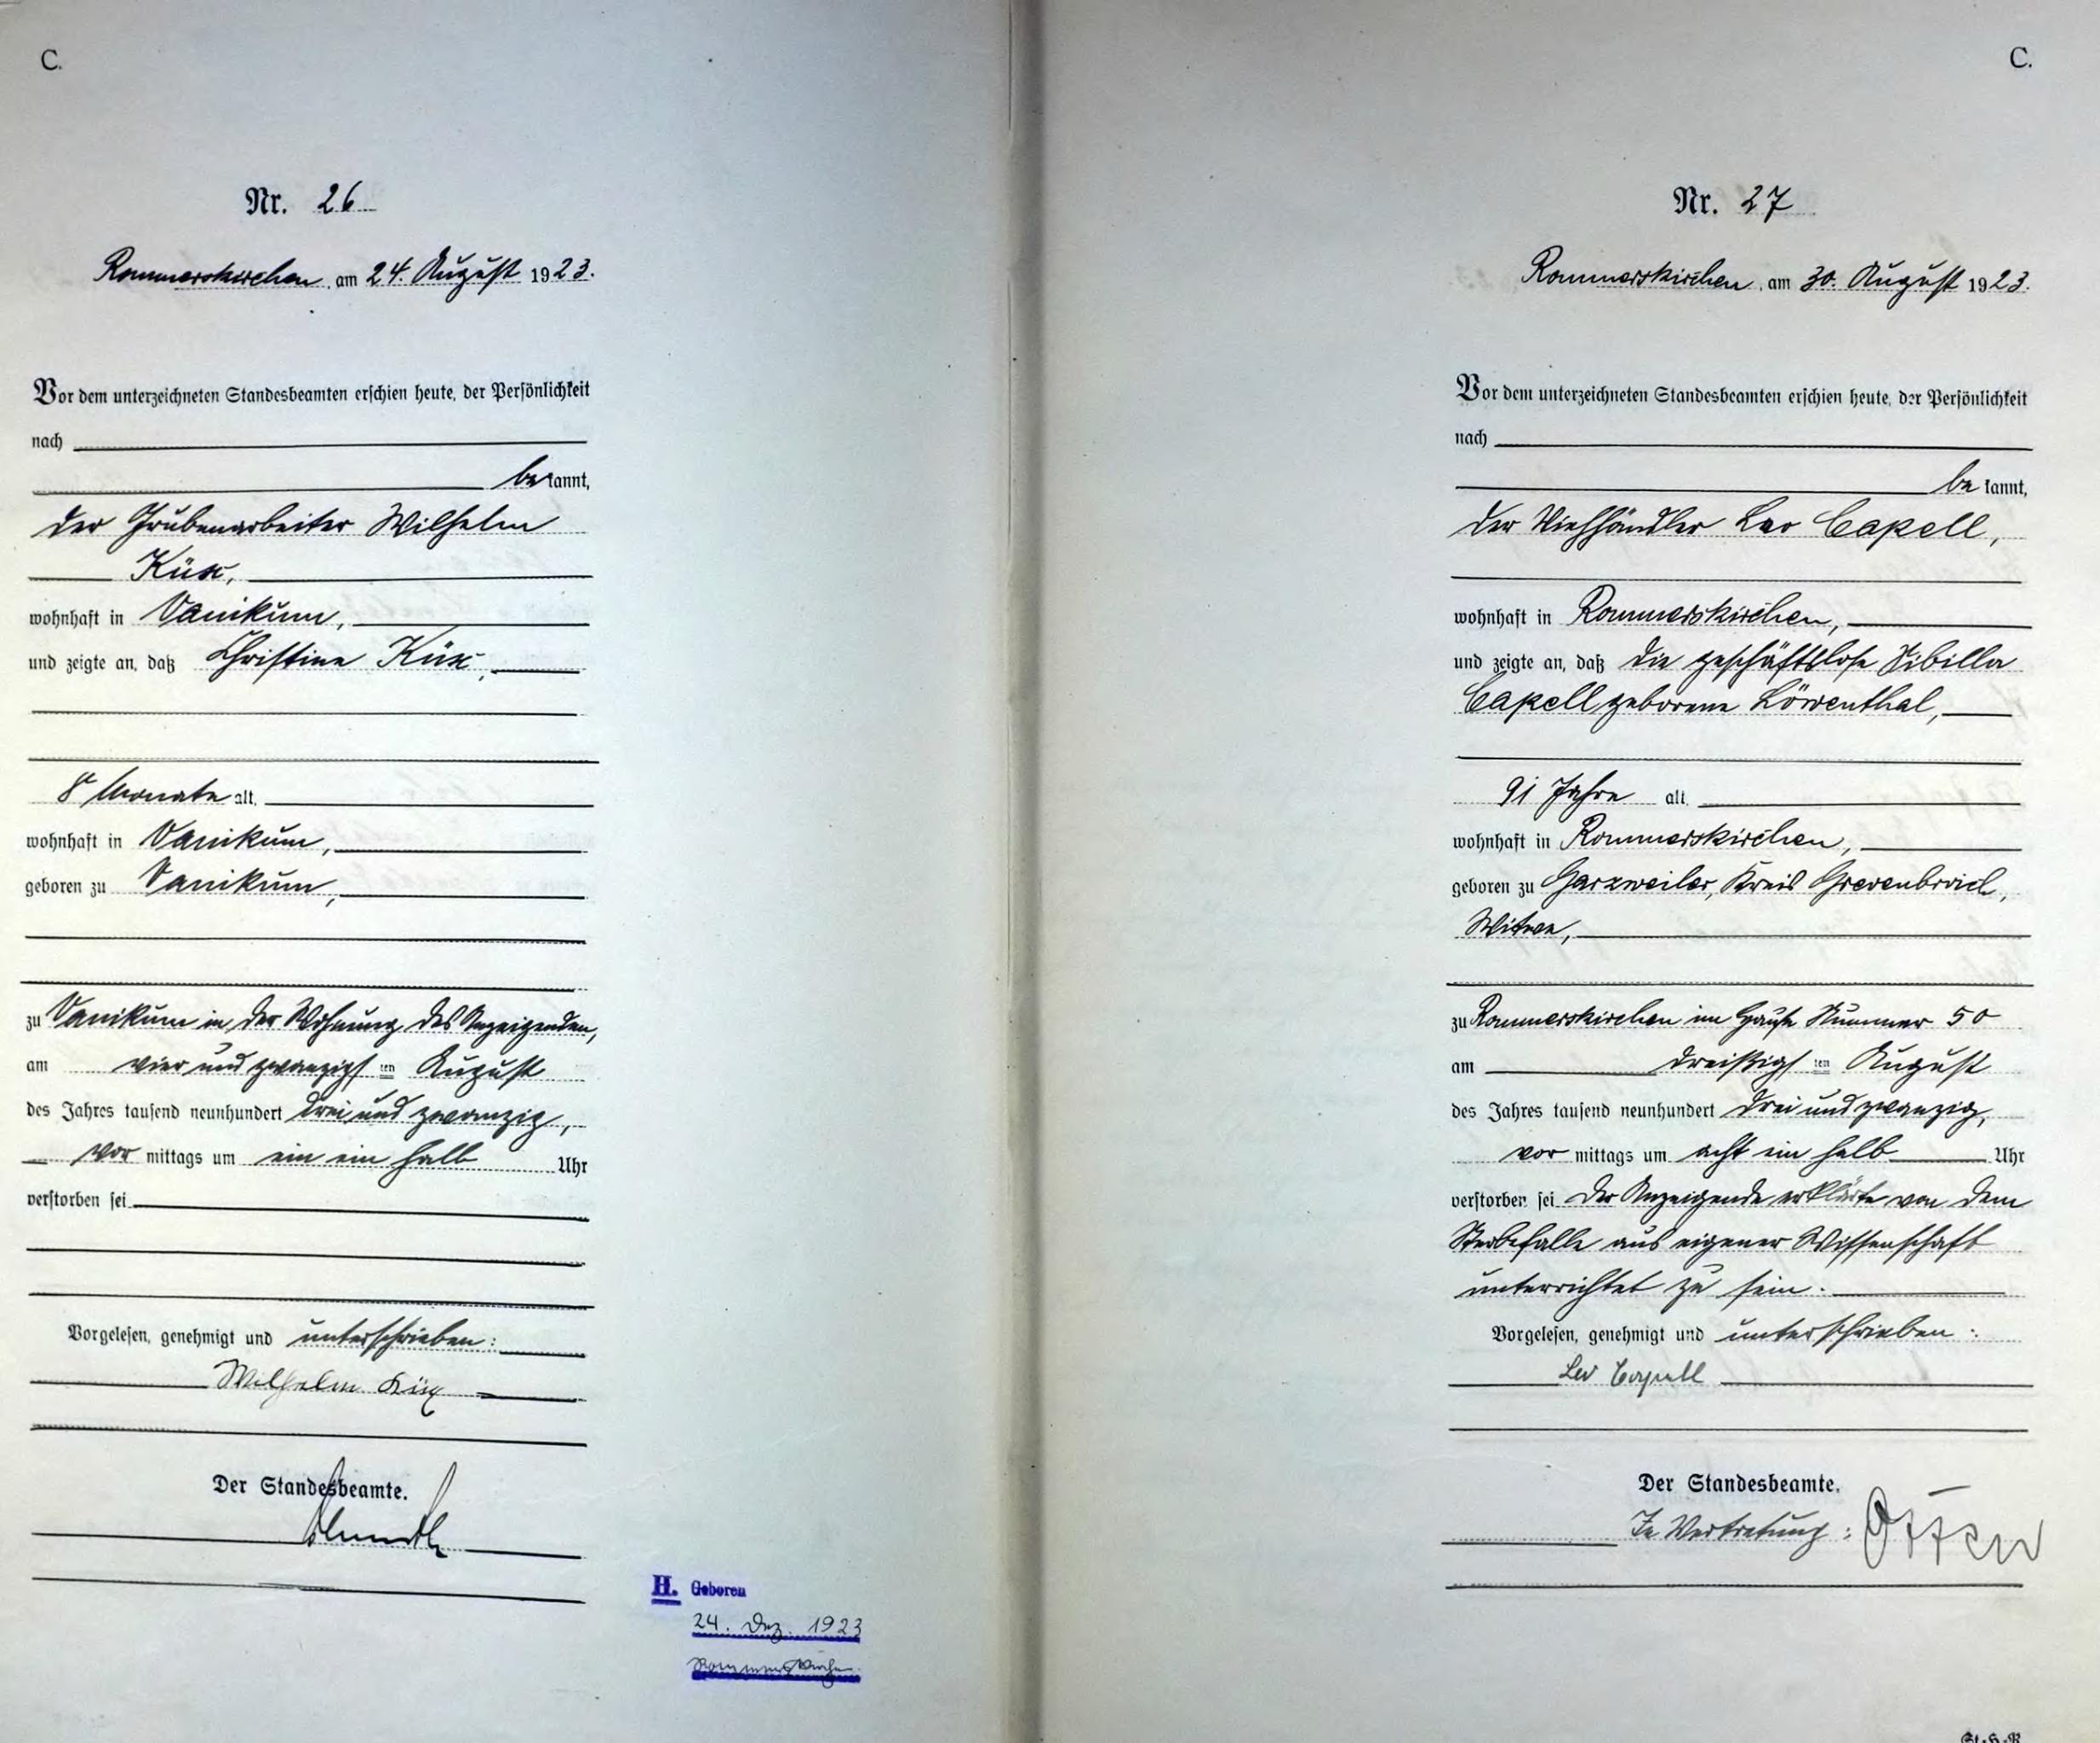 C.
Nr. 26
Rommerskirchen, am 24. August 1923.
Vor dem unterzeichneten Standesbeamten erschien heute, der Persönlichkeit
nach
bekannt,
der Grubenarbeiter Wilhelm
Küx,
wohnhaft in Vanikum,
und zeigte an, daß Christine Küx,
8 Monate alt,
wohnhaft in Vanikum,
geboren zu Vanikum,
zu Vanikum in der Wohnung des Anzeigenden,
am vier und zwanzigsten August
des Jahres tausend neunhundert drei und zwanzig,
vormittags um ein ein halb Uhr
verstorben sei.
Vorgelesen, genehmigt und unterschrieben:
Wilhelm Küx
Der Standesbeamte.
H. Geboren
24. Dez. 1923
Rommerskirchen
C.
Nr. 27
Rommerskirchen, am 30. August 1923.
Vor dem unterzeichneten Standesbeamten erschien heute, der Persönlichkeit
nach
bekannt,
der Viehhändler Leo Capell,
wohnhaft in Rommerskirchen,
und zeigte an, daß die geschäftslose Sibilla
Capell geborene Löwenthal,
91 Jahre alt,
wohnhaft in Rommerskirchen,
geboren zu Garzweiler, Kreis Grevenbroich,
Witwe,
zu Rommerskirchen im Hause Nummer 50
am dreißigsten August
des Jahres tausend neunhundert drei und zwanzig,
vormittags um acht ein halb Uhr
verstorben sei. Der Anzeigende erklärte von dem
Sterbefalle aus eigener Wissenschaft
unterrichtet zu sein.
Vorgelesen, genehmigt und unterschrieben:
Leo Capell
Der Standesbeamte.
In Vertretung: Otten